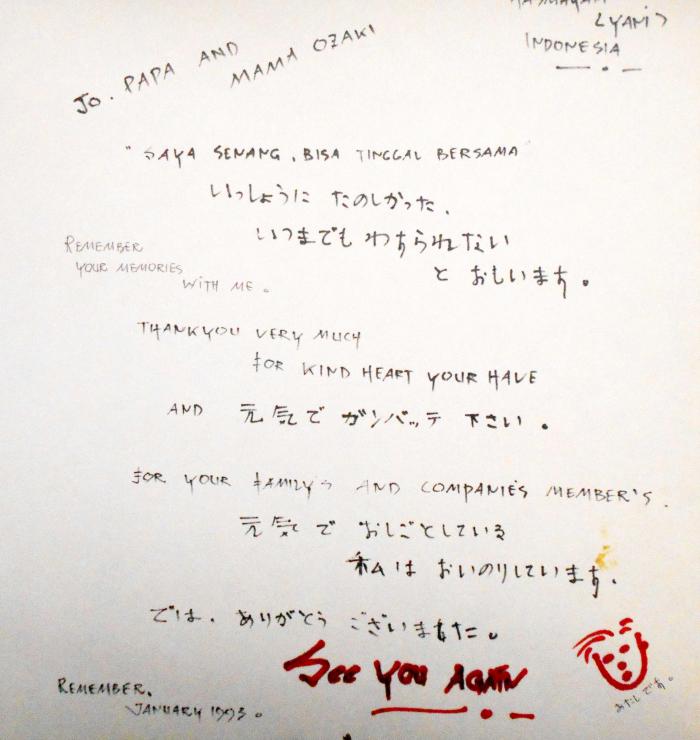 <YAMI>
INDONESIA
JO. PAPA AND
MAMA OZAKI
"SAYA SENANG, BISA TINGGAL BERSAMA"
いっしょうに たのしかった.
いつまでも わすられたない
と おもいます。
REMEMBER
YOUR MEMORIES
WITH ME.
THANKYOU VERY MUCH
FOR KIND HEART YOUR HAVE
AND 元気で ガンバッテ 下さい.
FOR YOUR FAMILY'S AND COMPANIE'S MEMBER'S.
元気で おしごとしている
私は おいのりしています.
では. ありがとう ございました。
SEE YOU AGAIN
あたしです。
REMEMBER.
JANUARY 1993.